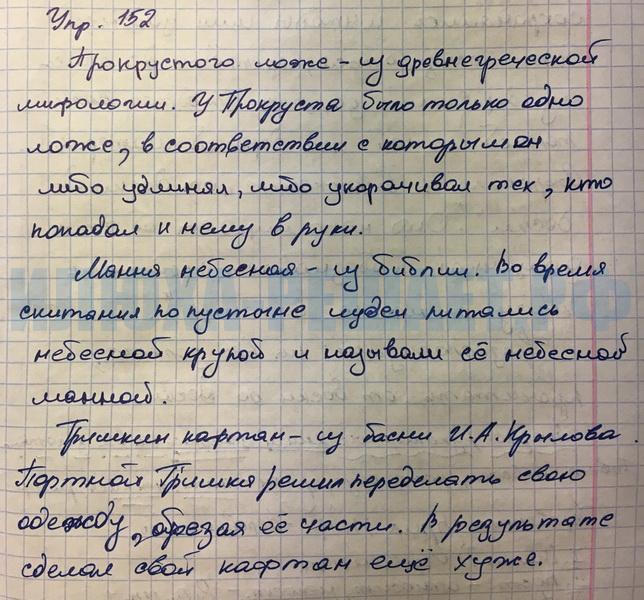 Упр. 152
Прокрустого ложе – из древнегреческой
мифологии. У Прокруста было только одно
ложе, в соответствии с которым он
либо удлинял, либо укорачивал тех, кто
попадал к нему в руки.
Манна небесная – из библии. Во время
скитания по пустыне иудеи питались
небесной крупой и называли её небесной
манной.
Тришкин кафтан – из басни И.А. Крылова.
Портной Тришка решил переделать свою
одежду, обрезая её части. В результате
сделал свой кафтан ещё хуже.